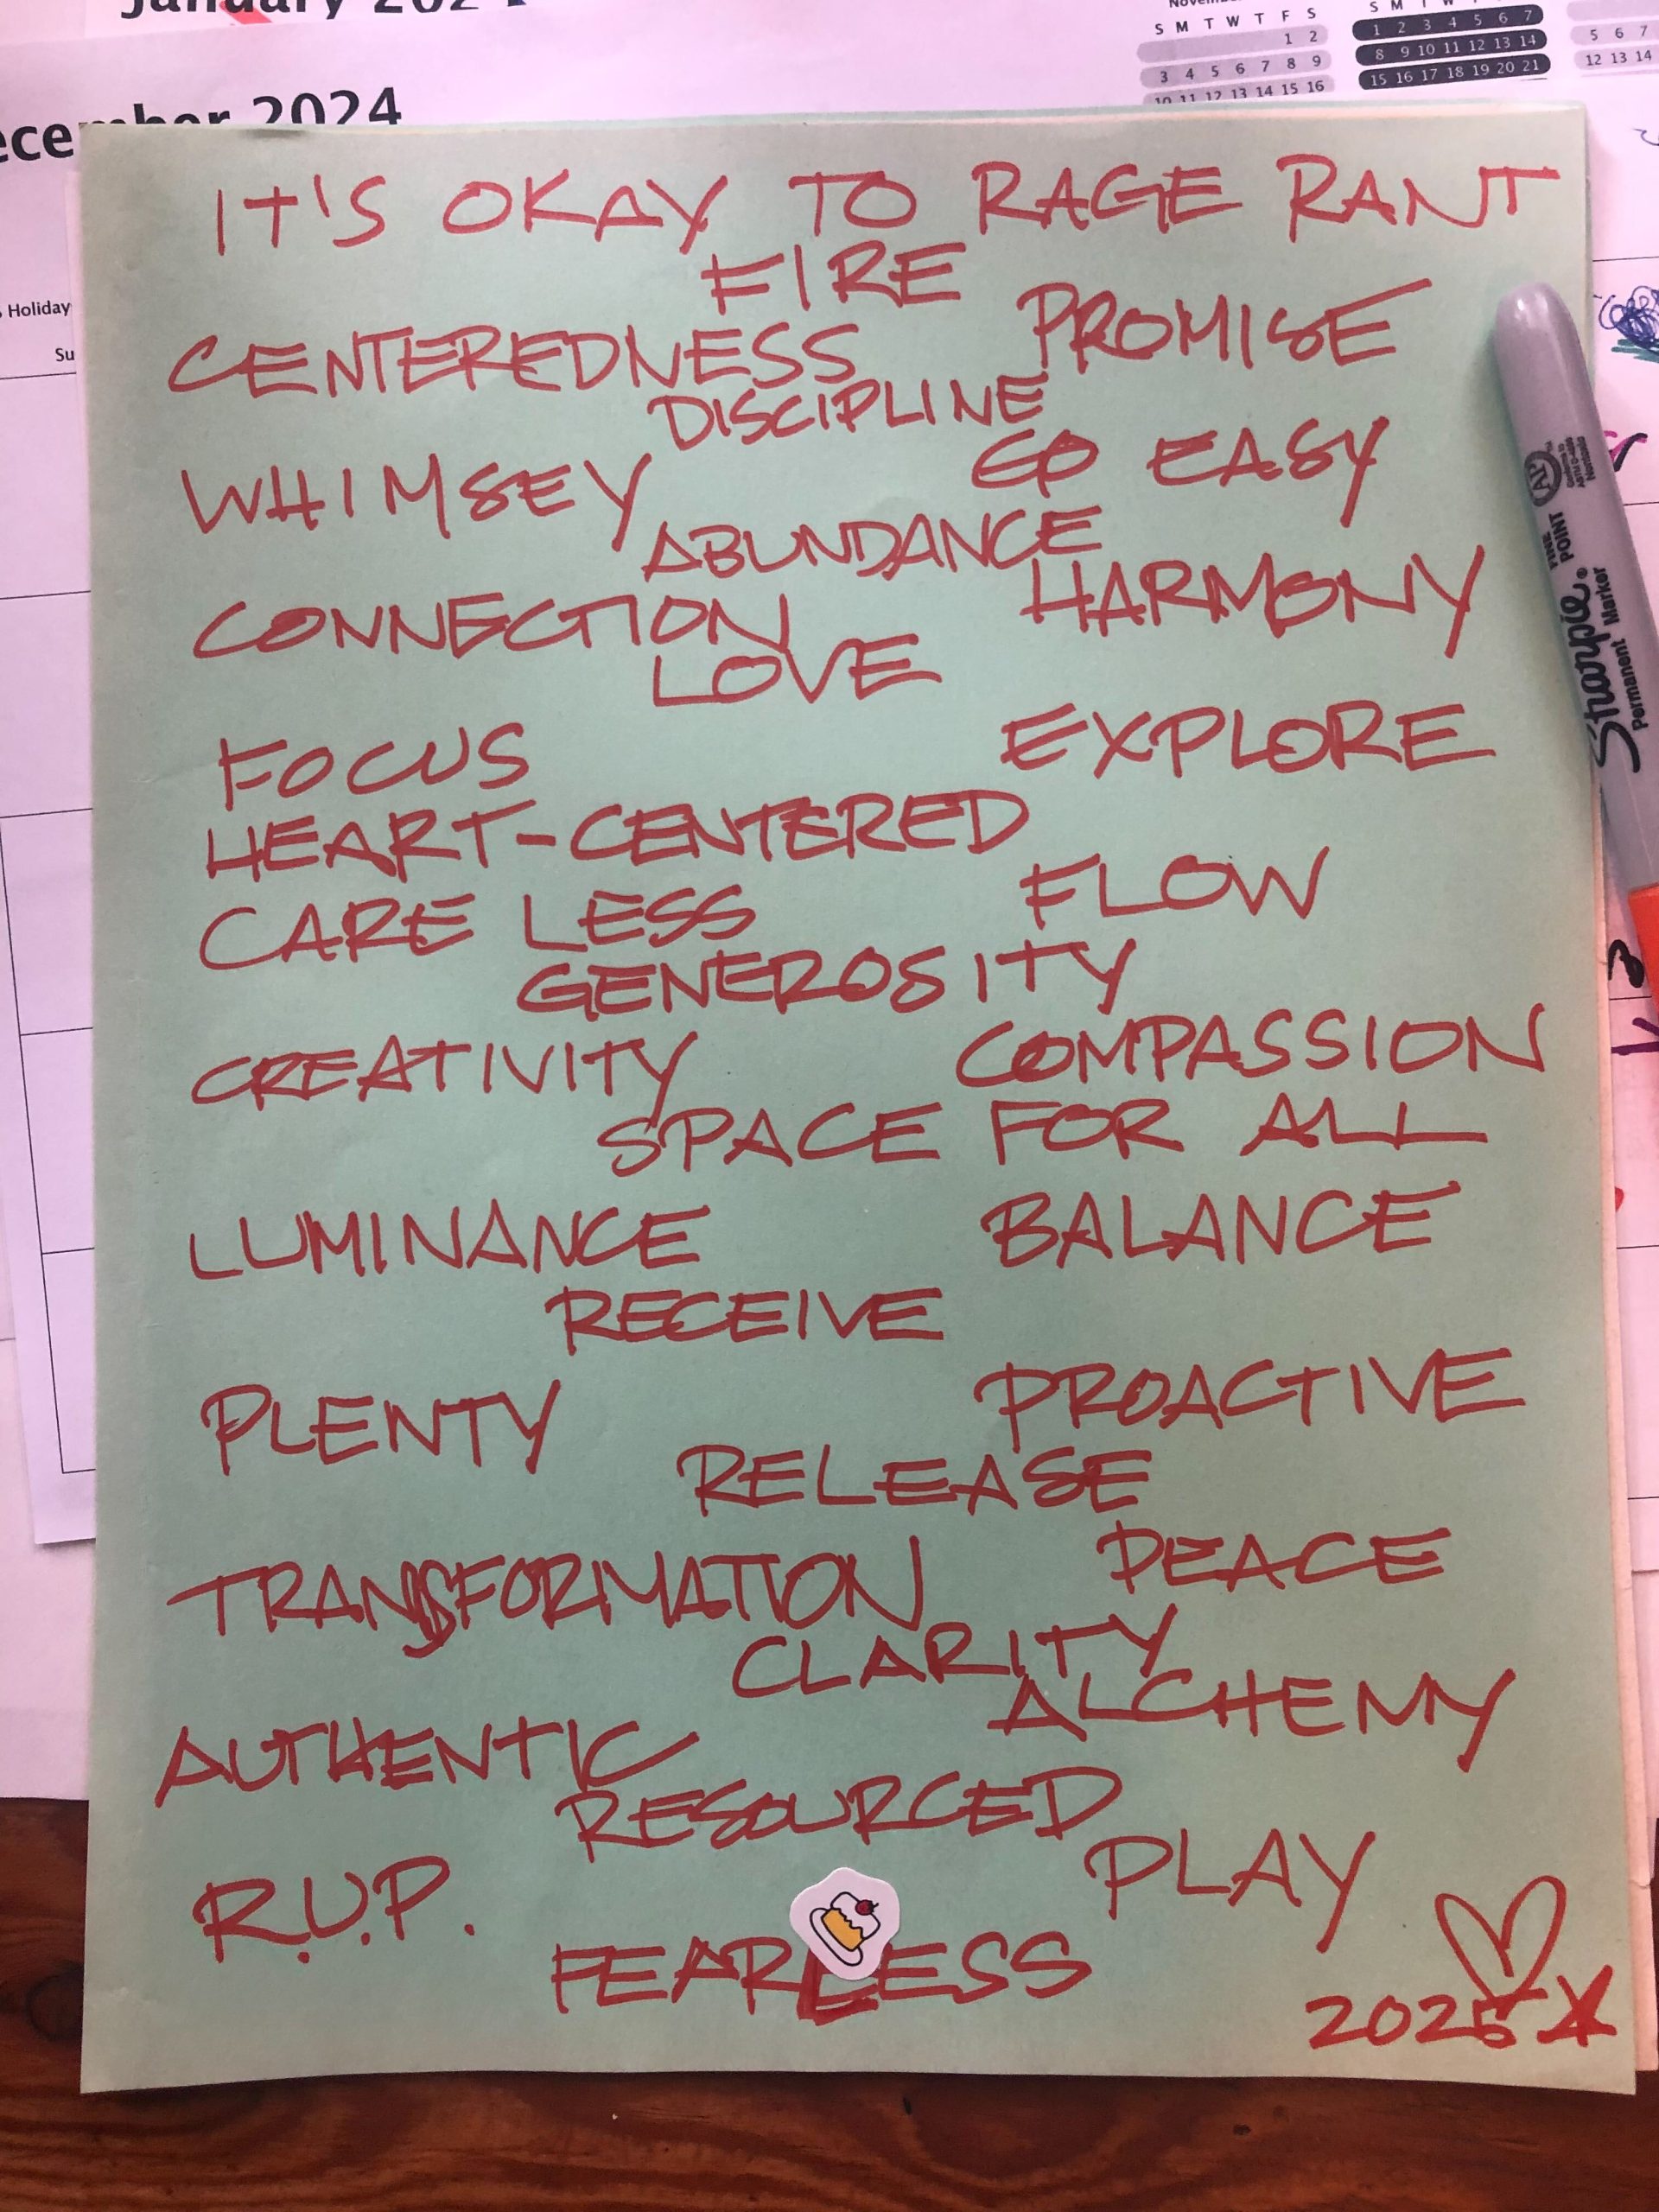 January 202
November
S M T W T F S
1 2
3 4 5 6 7 8 9
10 11 12 13 14 15 16
S M T W
1 2 3 4 5 6 7
8 9 10 11 12 13 14
15 16 17 18 19 20 21
5 6 7
12 13 14
ecember 2024
Holiday
Su
IT'S OKAY TO RAGE RANT
FIRE
PROMISE
CENTEREDNESS
DISCIPLINE
GO EASY
WHIMSEY
ABUNDANCE
HARMONY
CONNECTION
LOVE
EXPLORE
FOCUS
HEART-CENTERED
FLOW
CARE LESS
GENEROSITY
COMPASSION
CREATIVITY
SPACE FOR ALL
LUMINANCE
BALANCE
RECEIVE
PROACTIVE
PLENTY
RELEASE
PEACE
TRANSFORMATION
CLARITY
ALCHEMY
AUTHENTIC
RESOURCED
PLAY
R.U.P.
FEARLESS
2025
AP
FINE POINT
Sharpie®
Permanent Marker